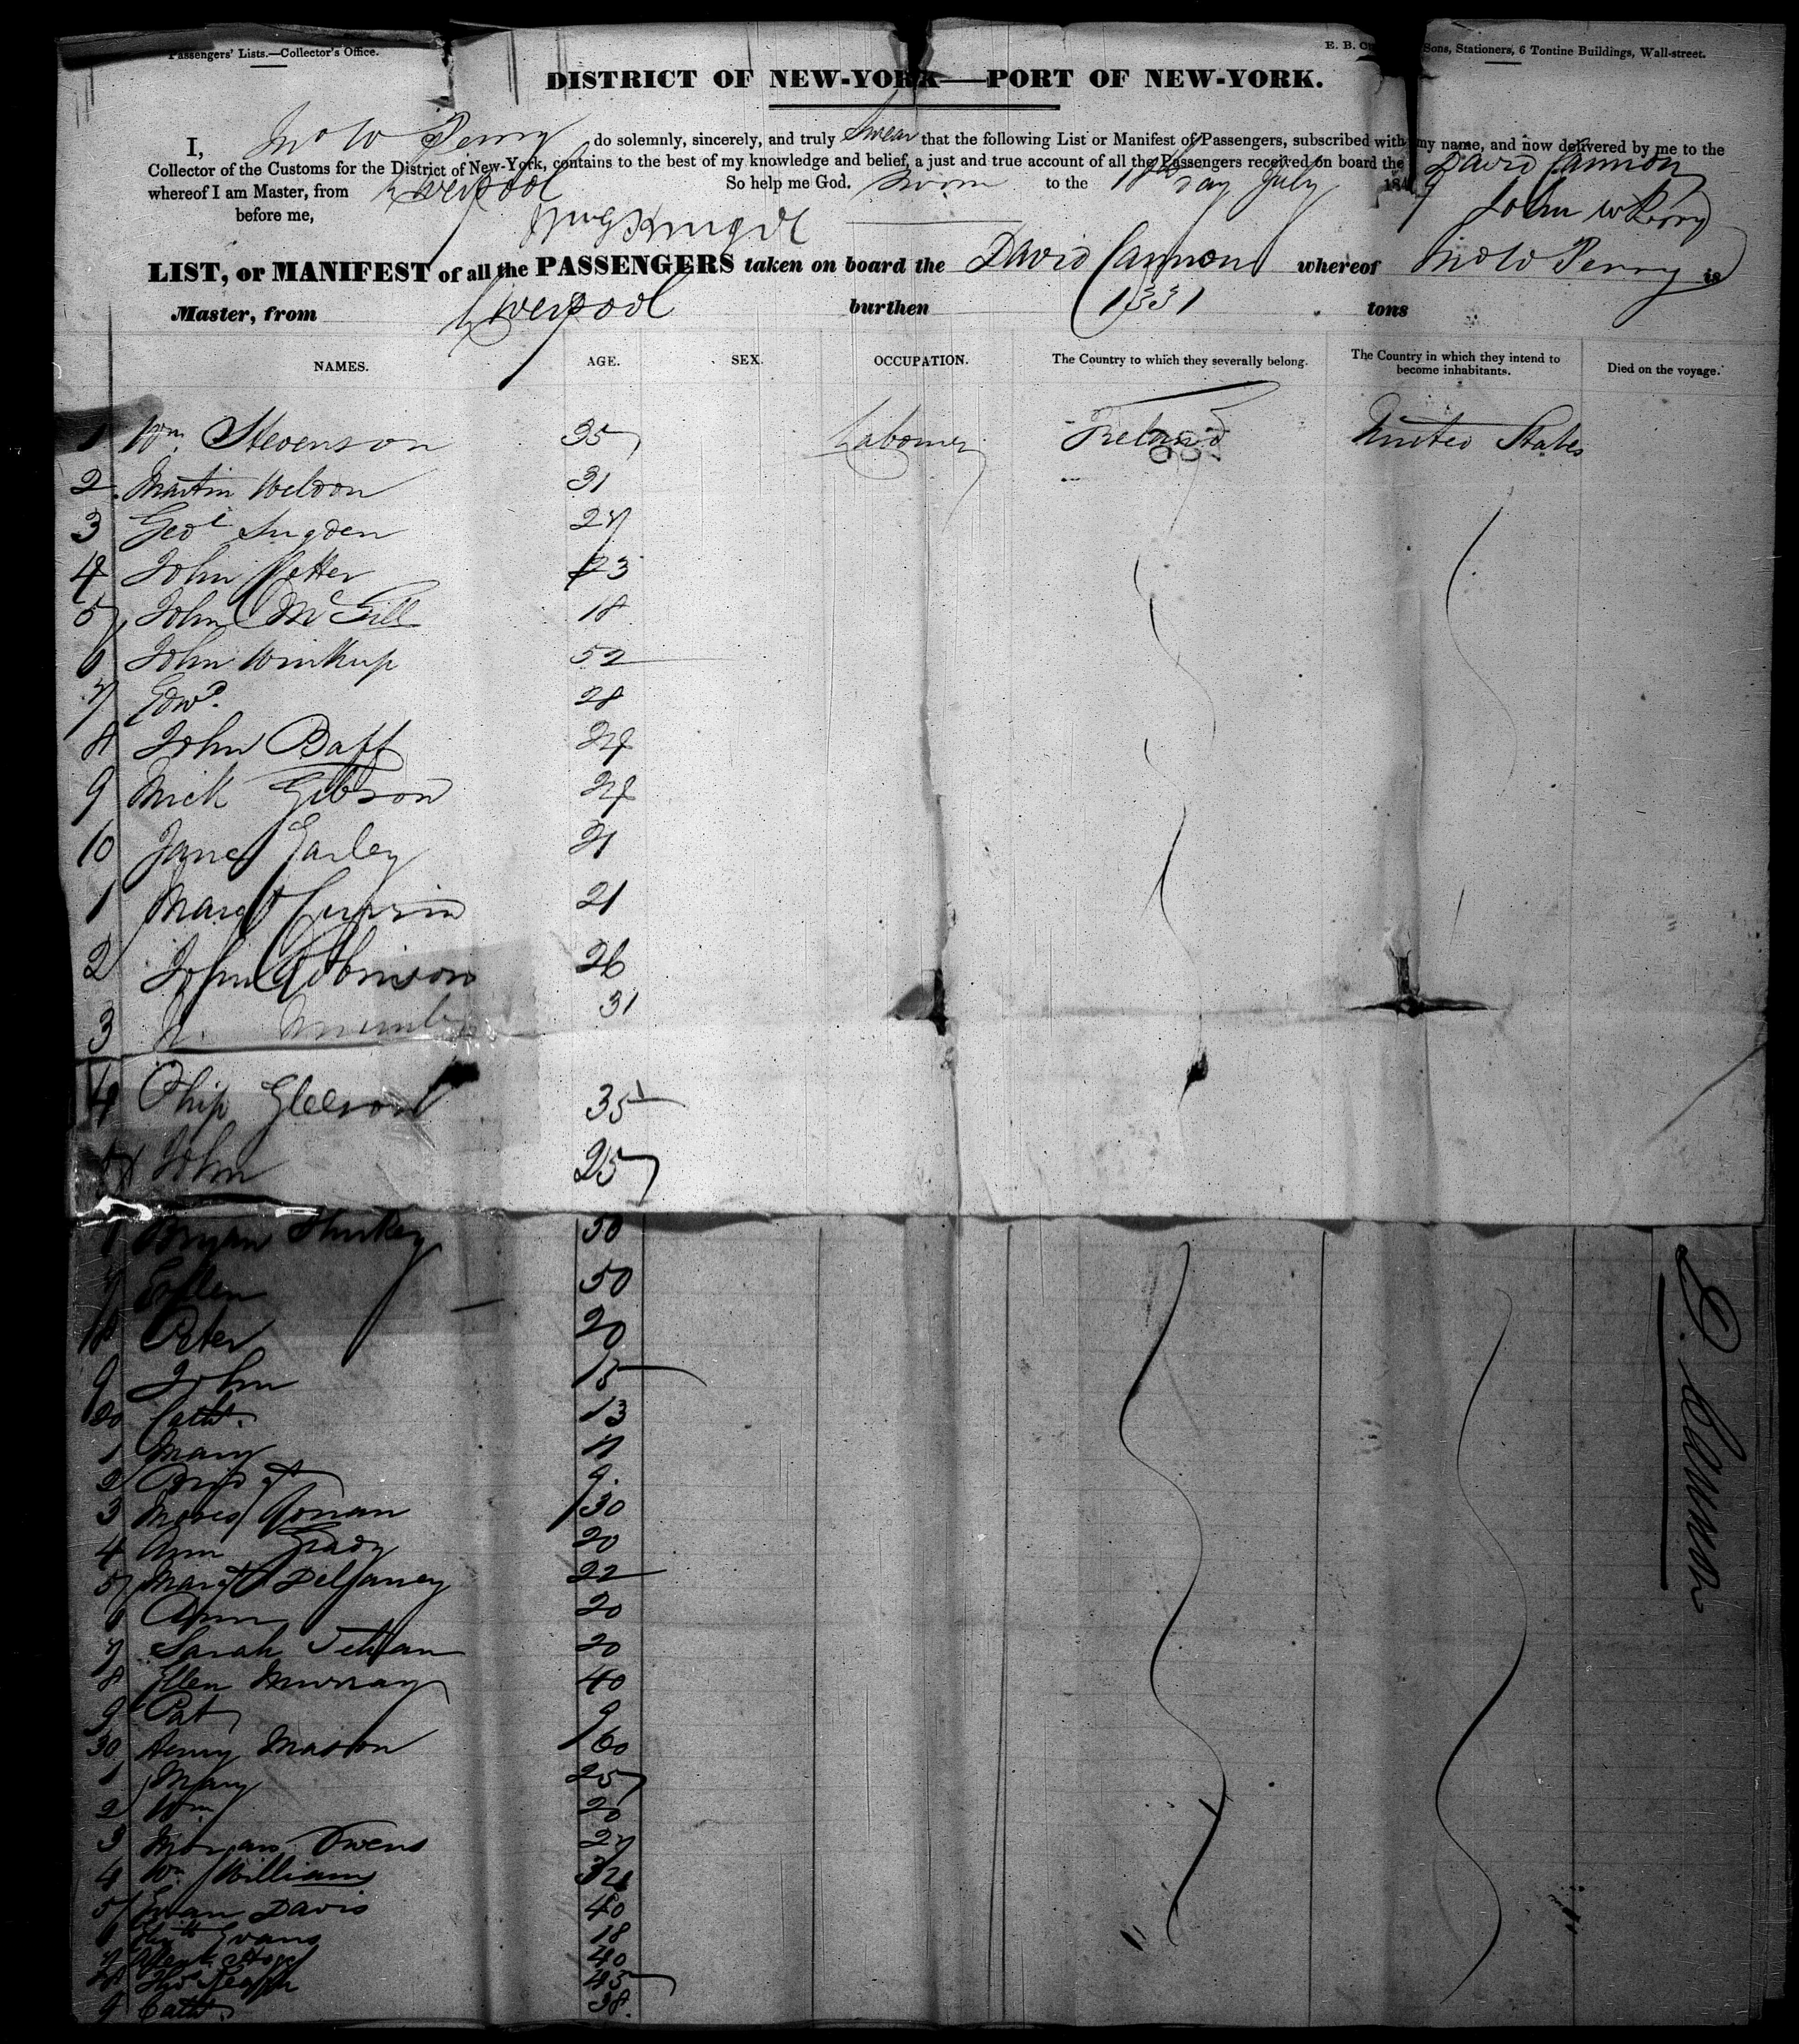 Passengers' Lists.—Collector's Office.
E. B. Sons, Stationers, 6 Tontine Buildings, Wall-street.
DISTRICT OF NEW-YORK—PORT OF NEW-YORK.
I, Jno W Perry do solemnly, sincerely, and truly swear that the following List or Manifest of Passengers, subscribed with my name, and now delivered by me to the
Collector of the Customs for the District of New-York, contains to the best of my knowledge and belief, a just and true account of all the Passengers received on board the David Cannon
whereof I am Master, from Liverpool So help me God. Sworn to the 18th day July 184
John W Perry
before me,
LIST, or MANIFEST of all the PASSENGERS taken on board the David Cannon whereof Jno W Perry is
Master, from Liverpool burthen 1331 tons
NAMES. AGE. SEX. OCCUPATION. The Country to which they severally belong. The Country in which they intend to become inhabitants. Died on the voyage.
1 Wm. Stevenson 35 Labourer Ireland United States
2 Martin Weldon 31
3 Geoe Sugden 27
4 John 23
5 John McGill 18
6 John Winkup 52
7 Edwd. 28
8 John Baff 24
9 Mick Gibson 24
10 Jane Earley 21
1 Margt 21
2 John Robinson 26
3 31
4 Phip Gleeson 35
5 John 25
Bryan Sharkey 50
7 Ellen 50
18 Peter 20
9 John 15
20 Cath. 13
1 Mary 11
2 Bridgt 9
3 Moses Ronan 30
4 Ann Grady 20
5 Margt Delaney 22
6 Ann 20
7 Sarah Tehan 20
8 Ellen Murray 40
9 Pat 9
30 Henry Mason 60
1 Mary 25
2 Wm 20
3 Morgan Owens 27
4 Wm. Williams 32
5 Evan Davis 40
6 Evans 18
7 40
8 Thos 45
9 Cath 38.
D. Cannon